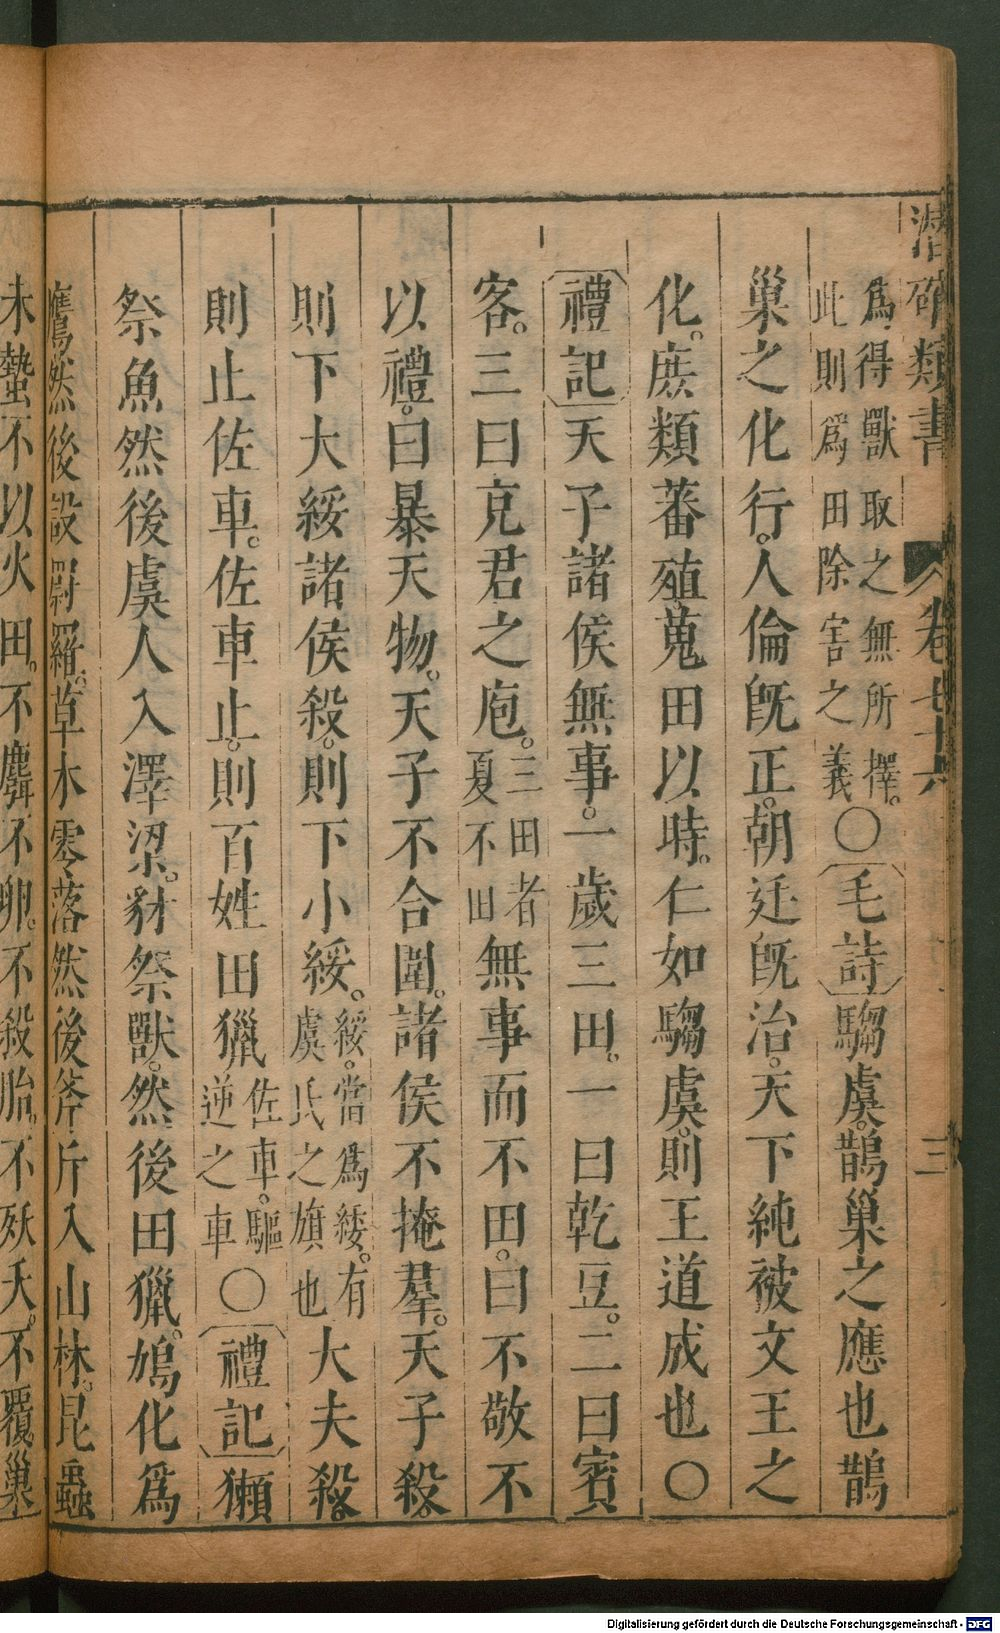 潜確類書 卷七十六 三
為得獸取之無所擇。此則為田除害之義○毛詩騶虞。鵲巢之應也鵲
巢之化行。人倫既正。朝廷既治。天下純被文王之
化。庶類蕃殖。蒐田以時。仁如騶虞。則王道成也○
禮記天子諸侯無事。一歲三田。一曰乾豆。二曰賓
客。三曰充君之庖。三田者夏不田無事而不田。曰不敬不
以禮。曰暴天物。天子不合圍。諸侯不掩羣。天子殺。
則下大綏諸侯殺。則下小綏。綏。當為緌。有虞氏之旗也大夫殺。
則止佐車。佐車止。則百姓田獵佐車。驅逆之車○禮記獺
祭魚然後虞人入澤梁。豺祭獸。然後田獵。鳩化為
鷹然後設罻羅。草木零落然後斧斤入山林。昆蟲
未蟄不以火田。不麛不卵。不殺胎。不殀夭。不覆巢
Digitalisierung gefördert durch die Deutsche Forschungsgemeinschaft - DFG